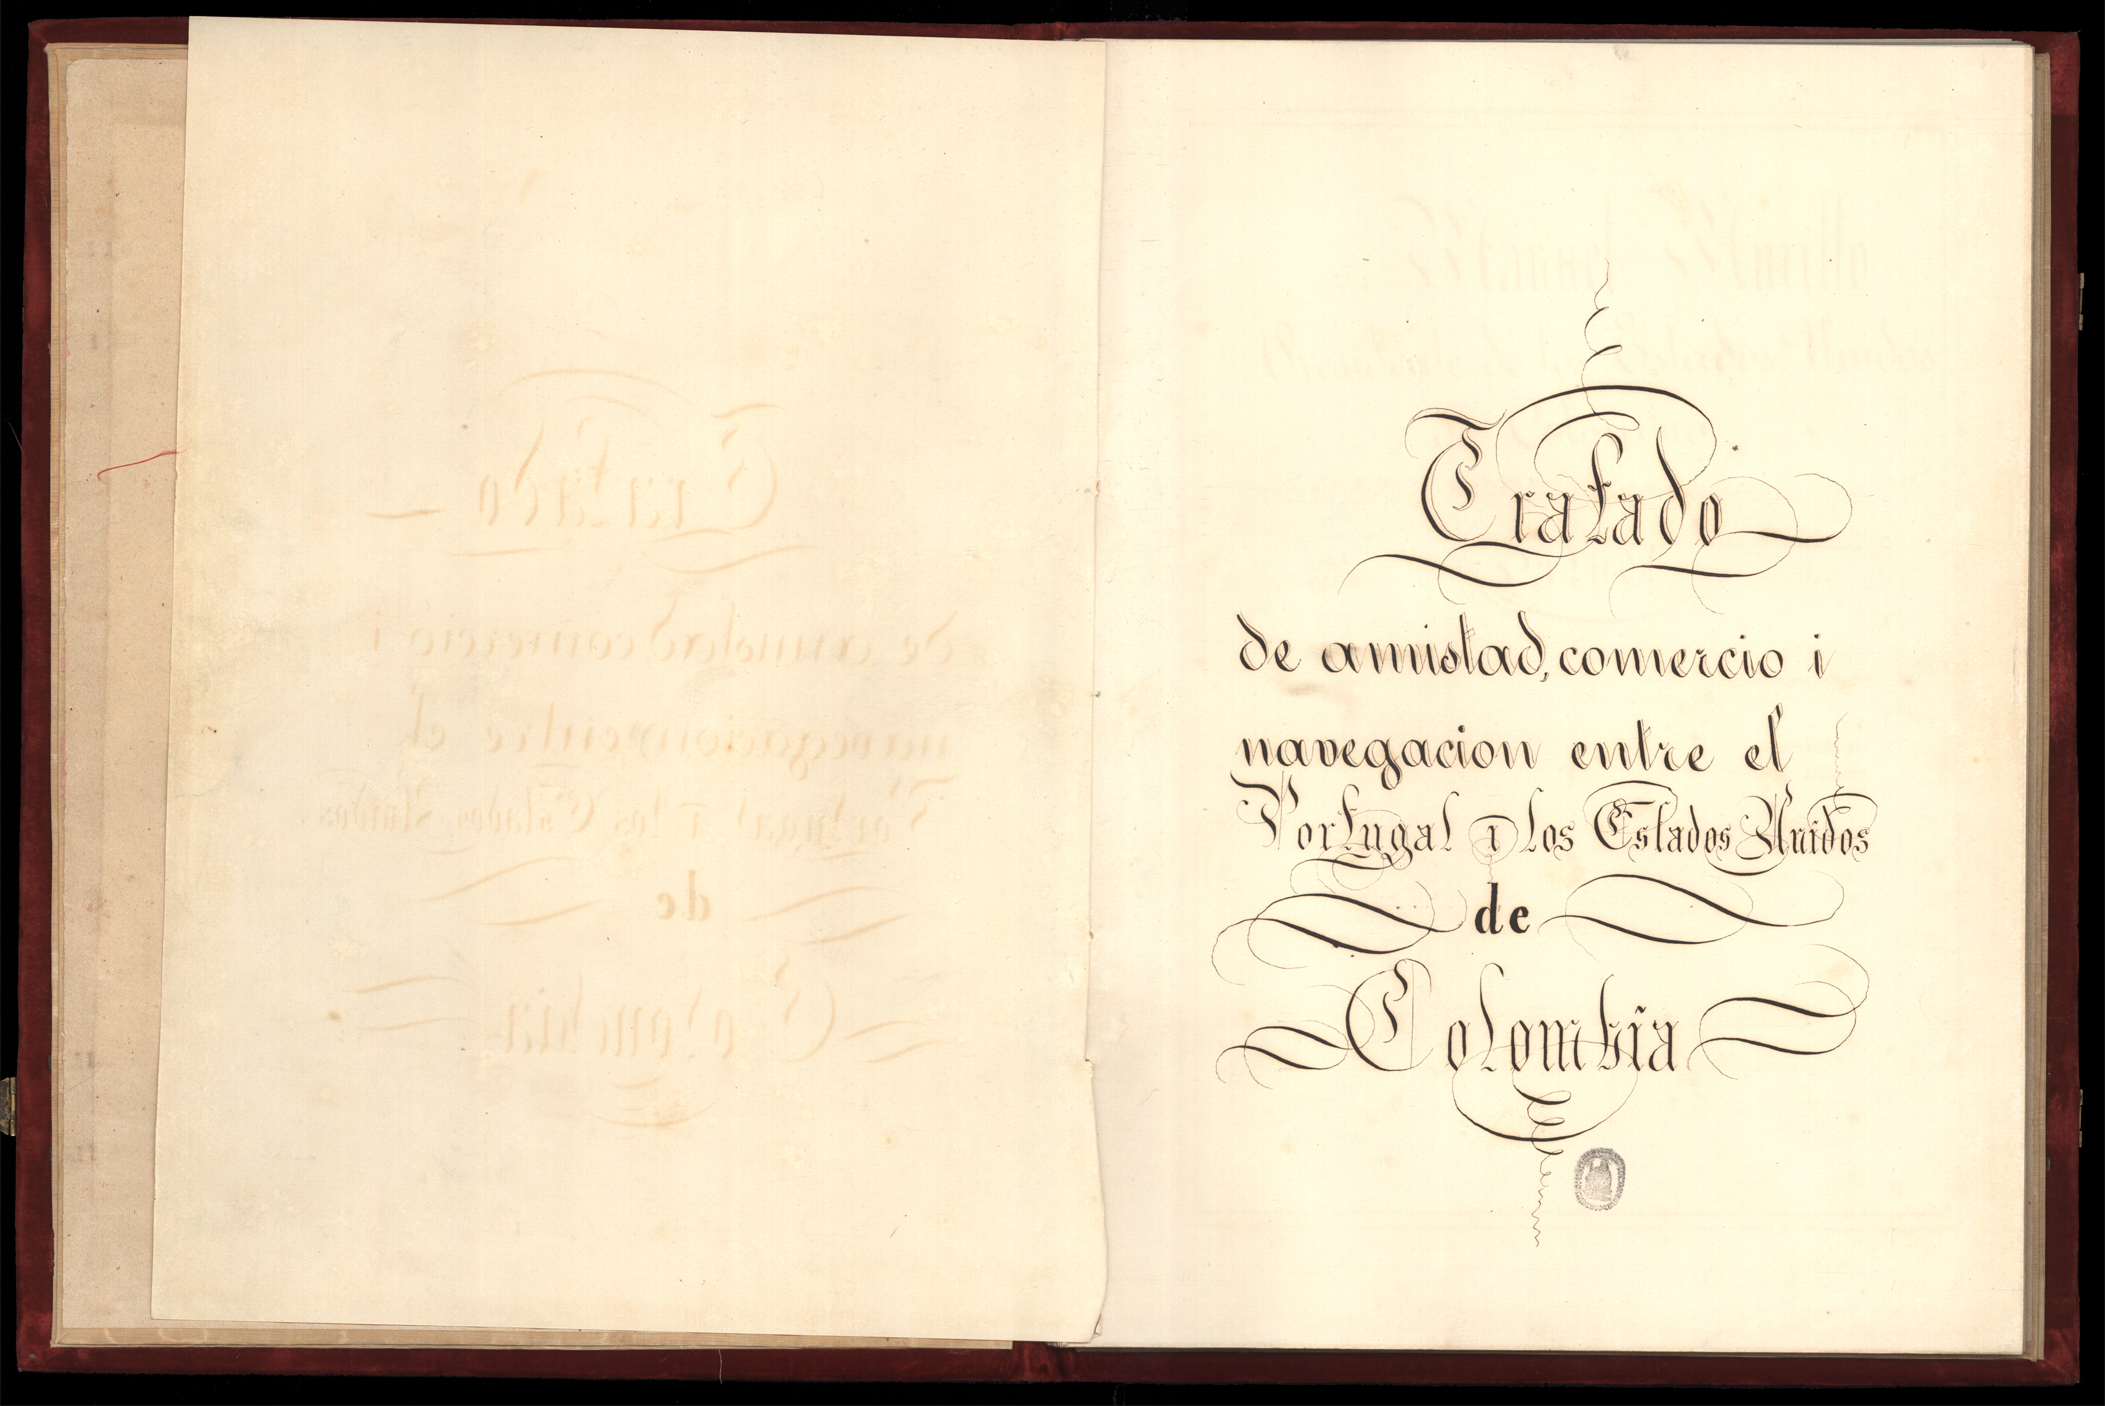 Tratado
de amistad, comercio i
navegacion entre el
Portugal i los Estados Unidos
de
Colombia